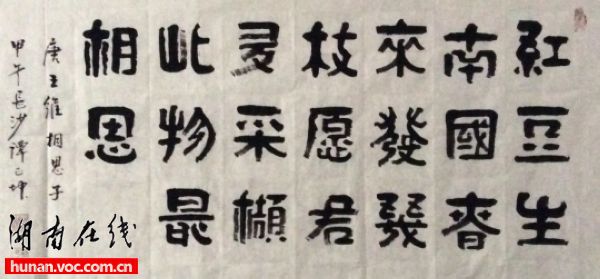 紅豆生
南國春
來發幾
枝愿君
多采擷
此物最
相思
唐王維相思子
甲午長沙譚己坤
湖南在线
hunan.voc.com.cn